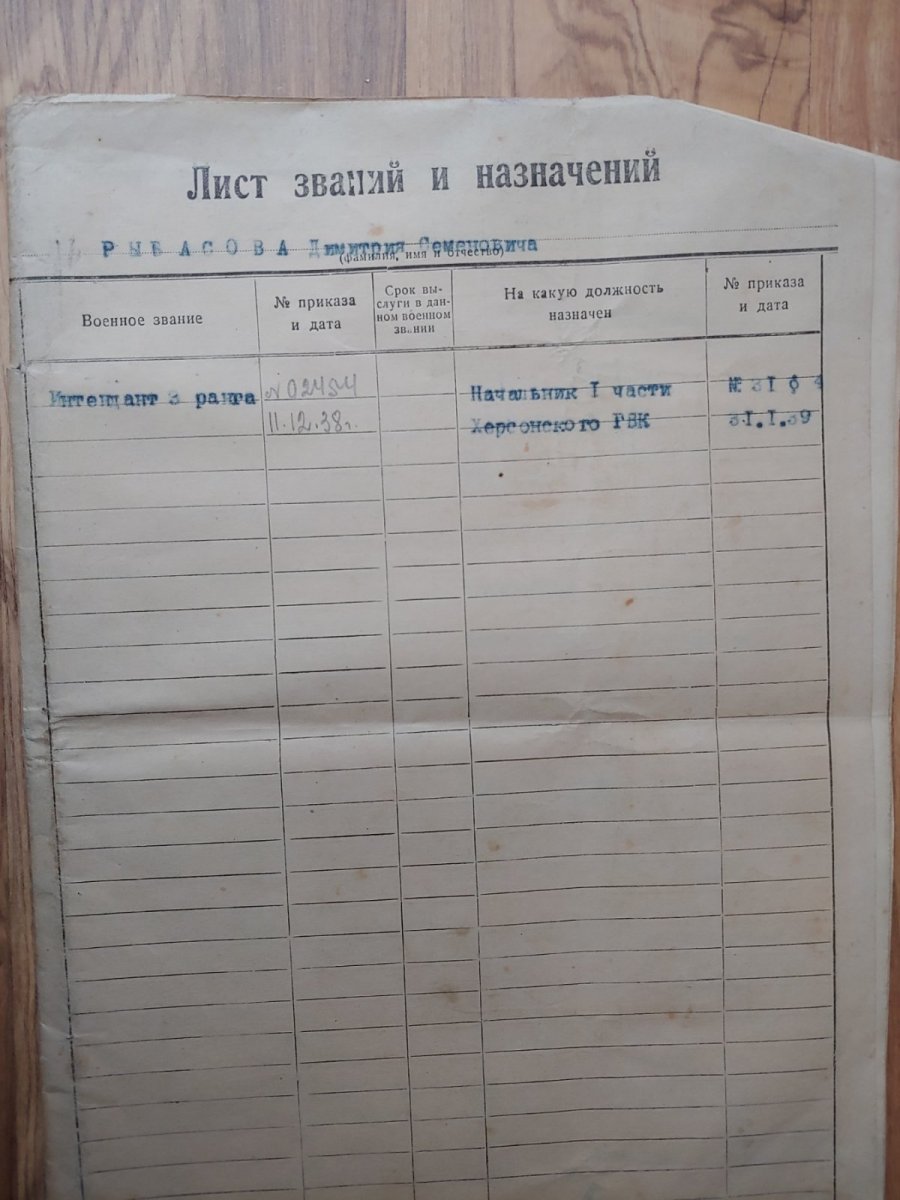 Лист званий и назначений
РЫБАСОВА Димитрия Семеновича
(фамилия, имя и отчество)
Военное звание
№ приказа и дата
Срок вы-
слуги в дан-
ном военном
звании
На какую должность
назначен
№ приказа
и дата
Интендант 3 ранга
№ 02454
11.12.38г.
Начальник I части
Херсонского ГВК
№ 31 § 4
31.I.39